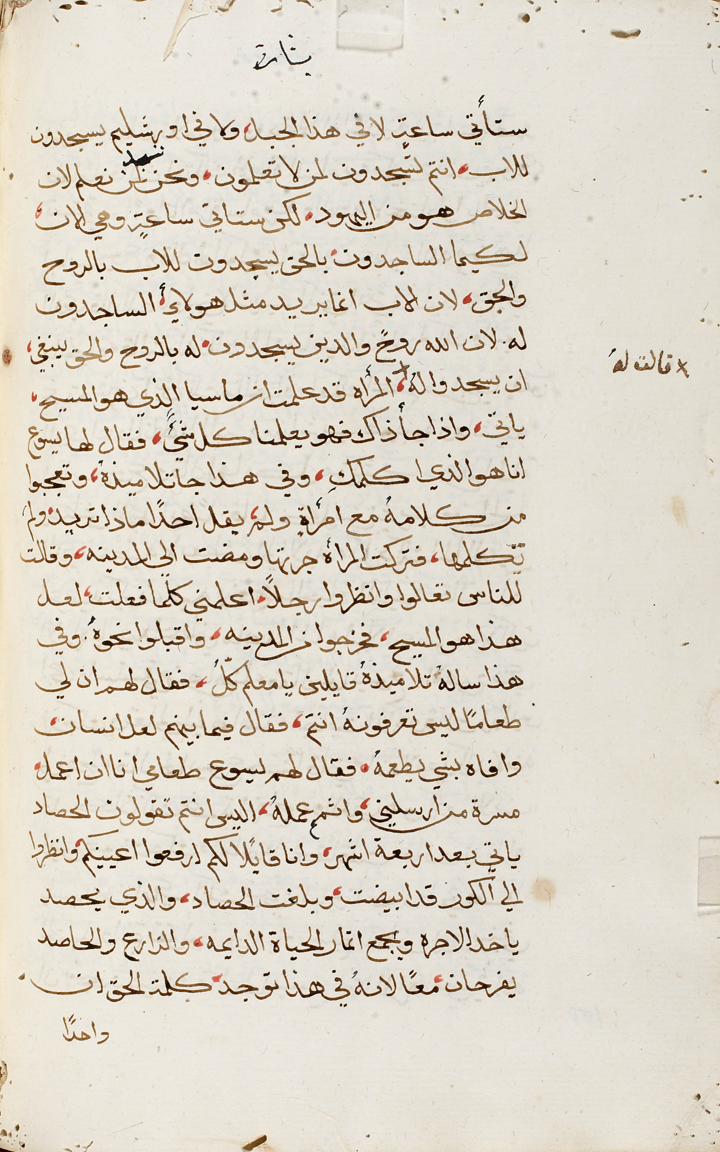 بشارة
ستأتي ساعةٍ لا في هذا الجبل، ولا في اورشليم يسجدون
للاب، انتم تسجدون لمن لا تعلمون، ونحن نسجد لمن نعلم لان
الخلاص هو من اليهود، لكن ستاتي ساعةٍ وهي الان،
لكيما الساجدون بالحق يسجدون للاب بالروح
والحق، لان الاب انما يريد مثل هولاءِ الساجدون
له. لان الله روحٌ والدين يسجدون له بالروح والحق ينبغي،
ان يسجدوا لهُ، المرأه قد علمت ان ماسيا الذي هو المسيح،
× قالت لهُ
ياتي، واذا جأ ذاك فهو يعلمنا كل شيٍ، فقال لها يسوع
انا هو الذي اكلمكِ، وفي هذا جا تلاميذهُ، وتعجبوا
من كلامهُ مع امرأةٍ ولم، يقل احدًا ماذا تريد، ولم
تتكلمها، فتركت المرأه جرتها ومضت الى المدينه، وقالت
للناس تعالوا وانظروا رجلًا، اعلمني كلّما فعلت، لعل
هذا هو المسيح، فخرجوا من المدينه، واقبلوا نحوهُ. وفي
هذا سالهُ تلاميذهُ قايلين يا معلم كلّ، فقال لهم ان لي
طعامًا ليس تعرفونهُ انتم، فقال فيما بينهم لعل انسان،
وافاه بشي يطعمهُ، فقال لهم يسوع طعامي انا ان اعمل،
مسرة من ارسلني، واتمم عملهُ، اليس انتم تقولون الحصاد
ياتي بعد اربعة اشهر، وانا قايلًا لكم ارفعوا اعينكم وانظروا
الى الكور قد ابيضت، وبلغت الحصاد، والذي يحصد
ياخد الاجره ويجمع اثمار الحياة الدايمه، والزارع والحاصد
يفرحان، معًا لانهُ في هذا توجد، كلمة الحق ان
واحدًا